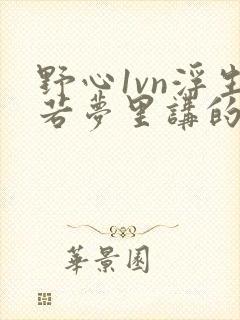 野心1vn浮生
若夢里講的
華景園